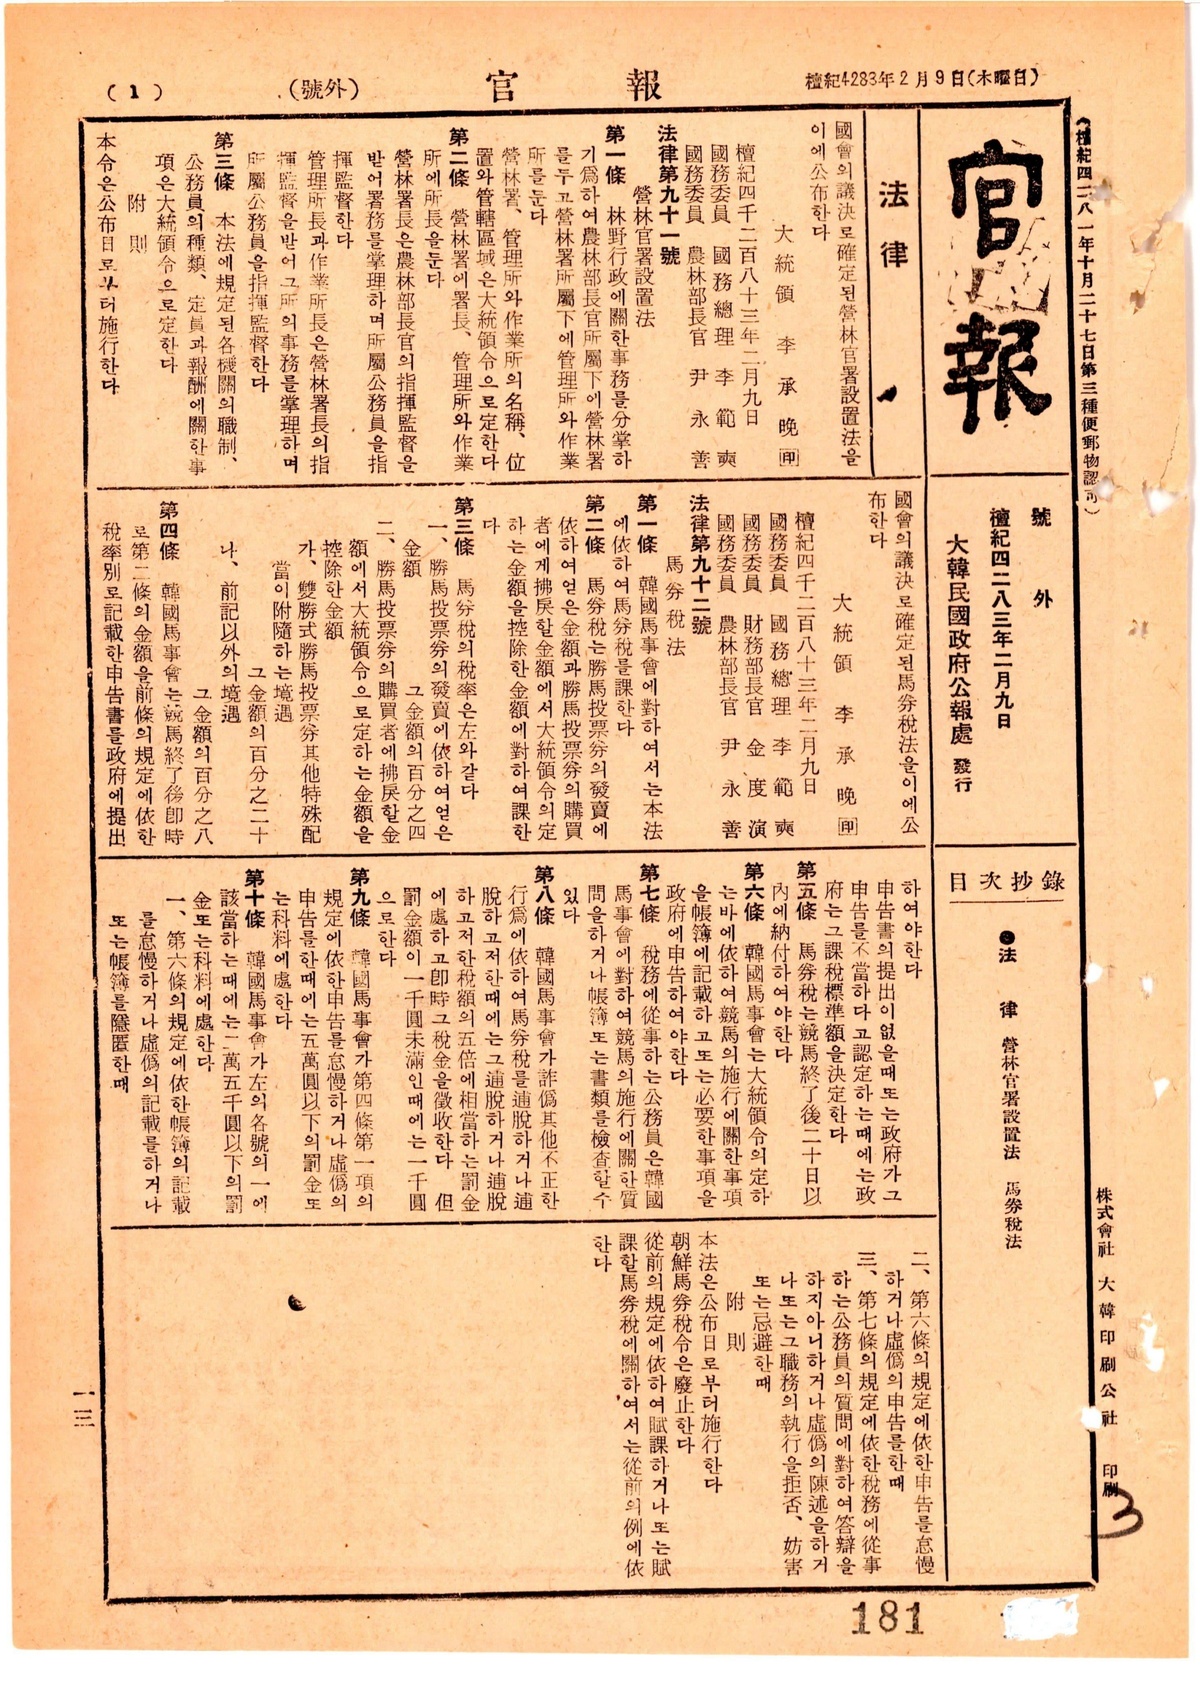 檀紀4283年2月9日(木曜日)
官報
(號外)
(1)
(檀紀四二八一年十月二十七日第三種便郵物認可)
官報
號外
檀紀四二八三年二月九日
大韓民國政府公報處 發行
目次抄錄
●法 律 營林官署設置法 馬券稅法
株式會社 大韓印刷公社 印刷
法律
國會의議決로確定된營林官署設置法을
이에公布한다
大統領 李承晩 印
檀紀四千二百八十三年二月九日
國務委員 國務總理 李範奭
國務委員 農林部長官 尹永善
法律第九十一號
營林官署設置法
第一條 林野行政에關한事務를分掌하
기爲하여農林部長官所屬下에營林署
를두고營林署所屬下에管理所와作業
所를둔다
營林署、管理所와作業所의名稱、位
置와管轄區域은大統領令으로定한다
第二條 營林署에署長、管理所와作業
所에所長을둔다
營林署長은農林部長官의指揮監督을
받어署務를掌理하며所屬公務員을指
揮監督한다
管理所長과作業所長은營林署長의指
揮監督을받어그所의事務를掌理하며
所屬公務員을指揮監督한다
第三條 本法에規定된各機關의職制、
公務員의種類、定員과報酬에關한事
項은大統領令으로定한다
附則
本令은公布日로부터施行한다
國會의議決로確定된馬券稅法을이에公
布한다
大統領 李承晩 印
檀紀四千二百八十三年二月九日
國務委員 國務總理 李範奭
國務委員 財務部長官 金度演
國務委員 農林部長官 尹永善
法律第九十二號
馬券稅法
第一條 韓國馬事會에對하여서는本法
에依하여馬券稅를課한다
第二條 馬券稅는勝馬投票券의發賣에
依하여얻은金額과勝馬投票券의購買
者에게拂戾할金額에서大統領令의定
하는金額을控除한金額에對하여課한
다
第三條 馬券稅의稅率은左와같다
一、勝馬投票券의發賣에依하여얻은
金額 그金額의百分之四
二、勝馬投票券의購買者에拂戾할金
額에서大統領令으로定하는金額을
控除한金額
가、雙勝式勝馬投票券其他特殊配
當이附隨하는境遇
그金額의百分之二十
나、前記以外의境遇
그金額의百分之八
第四條 韓國馬事會는競馬終了後卽時
로第二條의金額을前條의規定에依한
稅率別로記載한申告書를政府에提出
하여야한다
申告書의提出이없을때또는政府가그
申告를不當하다고認定하는때에는政
府는그課稅標準額을決定한다
第五條 馬券稅는競馬終了後二十日以
內에納付하여야한다
第六條 韓國馬事會는大統領令의定하
는바에依하여競馬의施行에關한事項
을帳簿에記載하고또는必要한事項을
政府에申告하여야한다
第七條 稅務에從事하는公務員은韓國
馬事會에對하여競馬의施行에關한質
問을하거나帳簿또는書類를檢査할수
있다
第八條 韓國馬事會가詐僞其他不正한
行爲에依하여馬券稅를逋脫하거나逋
脫하고저한때에는그逋脫하거나逋脫
하고저한稅額의五倍에相當하는罰金
에處하고卽時그稅金을徵收한다 但
罰金額이一千圓未滿인때에는一千圓
으로한다
第九條 韓國馬事會가第四條第一項의
規定에依한申告를怠慢하거나虛僞의
申告를한때에는五萬圓以下의罰金또
는科料에處한다
第十條 韓國馬事會가左의各號의一에
該當하는때에는二萬五千圓以下의罰
金또는科料에處한다
一、第六條의規定에依한帳簿의記載
를怠慢하거나虛僞의記載를하거나
또는帳簿를隱匿한때
二、第六條의規定에依한申告를怠慢
하거나虛僞의申告를한때
三、第七條의規定에依한稅務에從事
하는公務員의質問에對하여答辯을
하지아니하거나虛僞의陳述을하거
나또는그職務의執行을拒否、妨害
또는忌避한때
附則
本法은公布日로부터施行한다
朝鮮馬券稅令은廢止한다
從前의規定에依하여賦課하거나또는賦
課할馬券稅에關하여서는從前의例에依
한다
一三
181
3